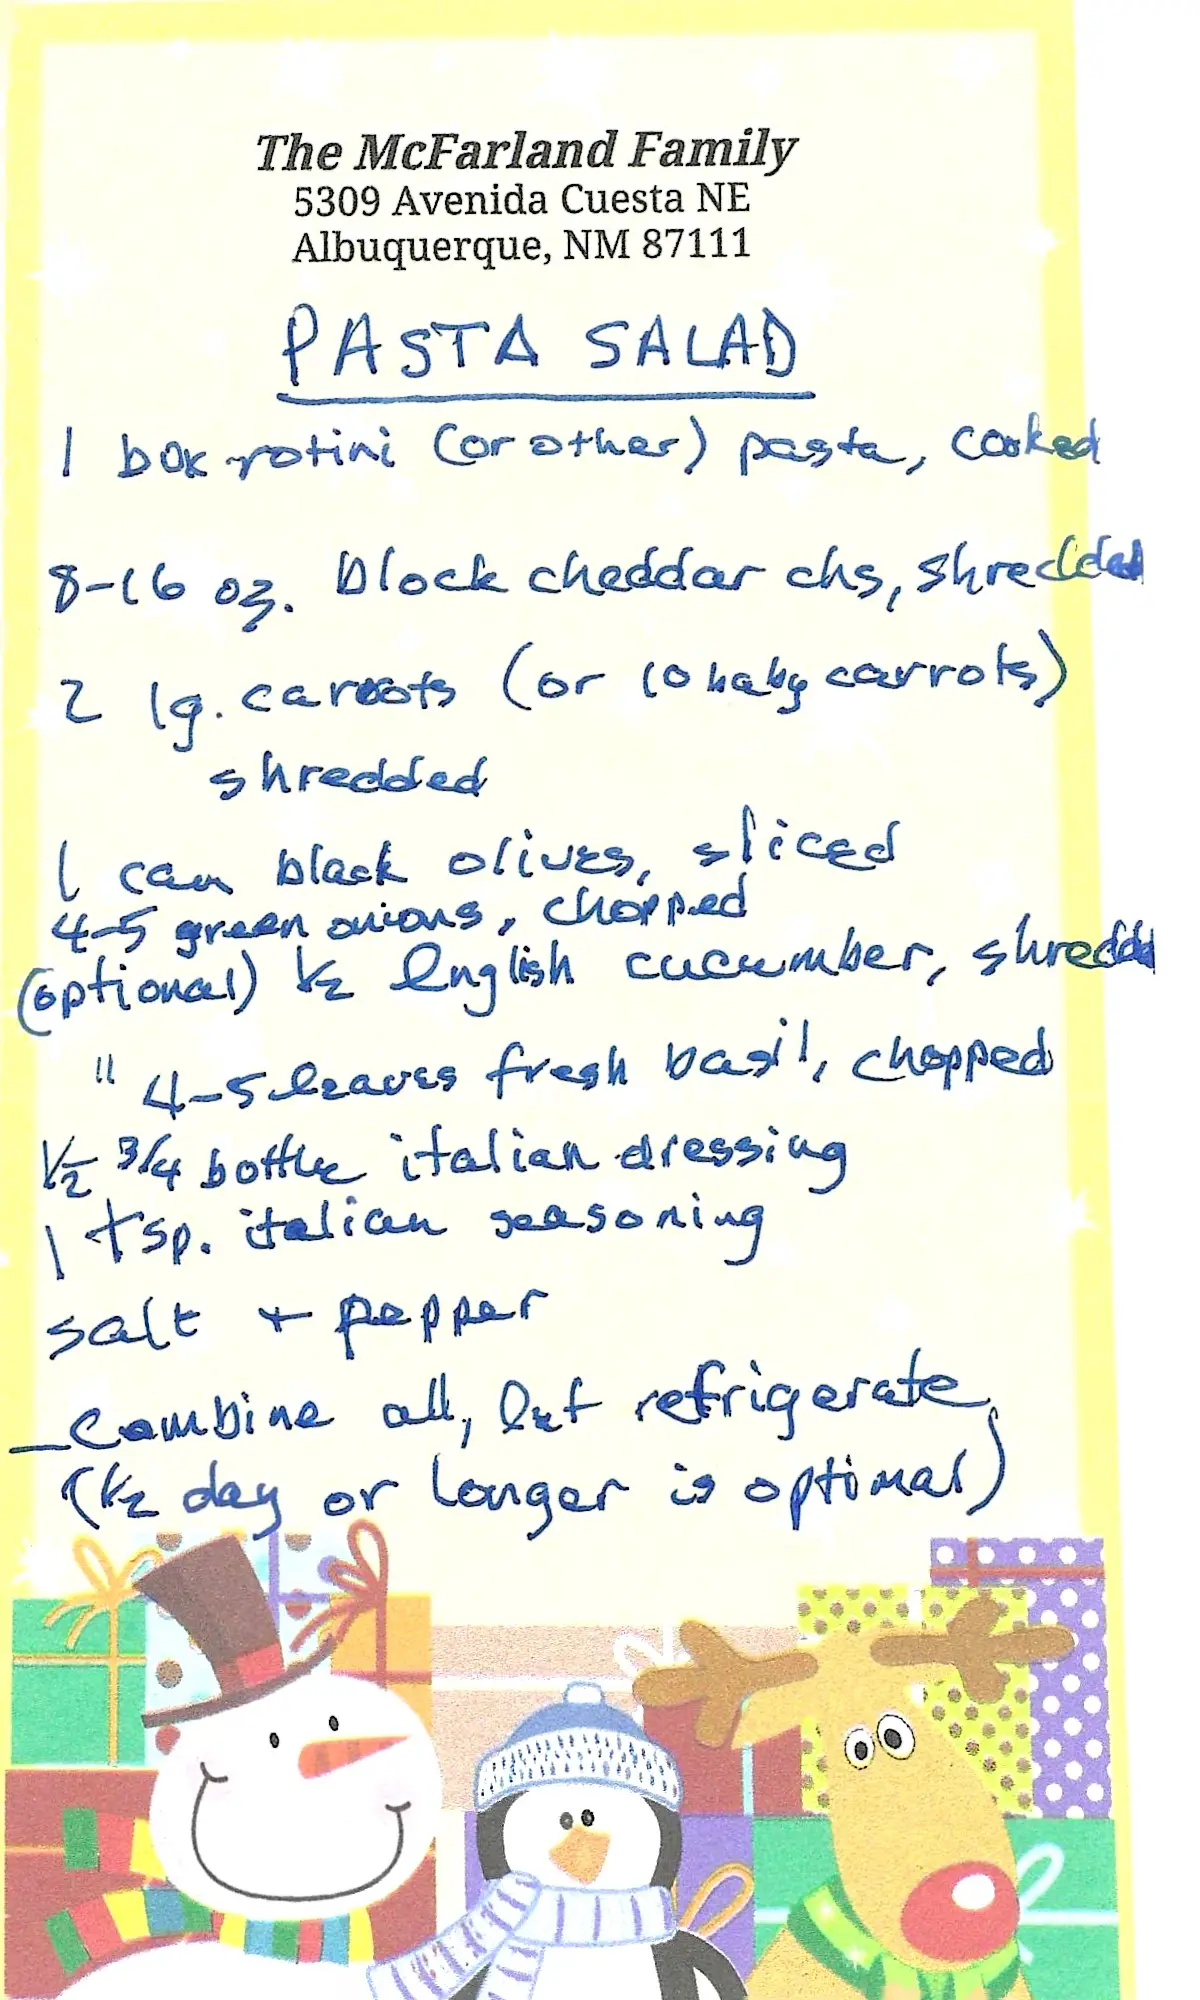 The McFarland Family
5309 Avenida Cuesta NE
Albuquerque, NM 87111
PASTA SALAD
1 box rotini (or other) pasta, cooked
8-16 oz. block cheddar chs, shredded
2 lg. carrots (or 10 baby carrots)
shredded
1 can black olives, sliced
4-5 green onions, chopped
(optional) 1/2 English cucumber, shredded
" 4-5 leaves fresh basil, chopped
1/2 3/4 bottle italian dressing
1 tsp. italian seasoning
salt + pepper
_combine all, let refrigerate
(1/2 day or longer is optimal)